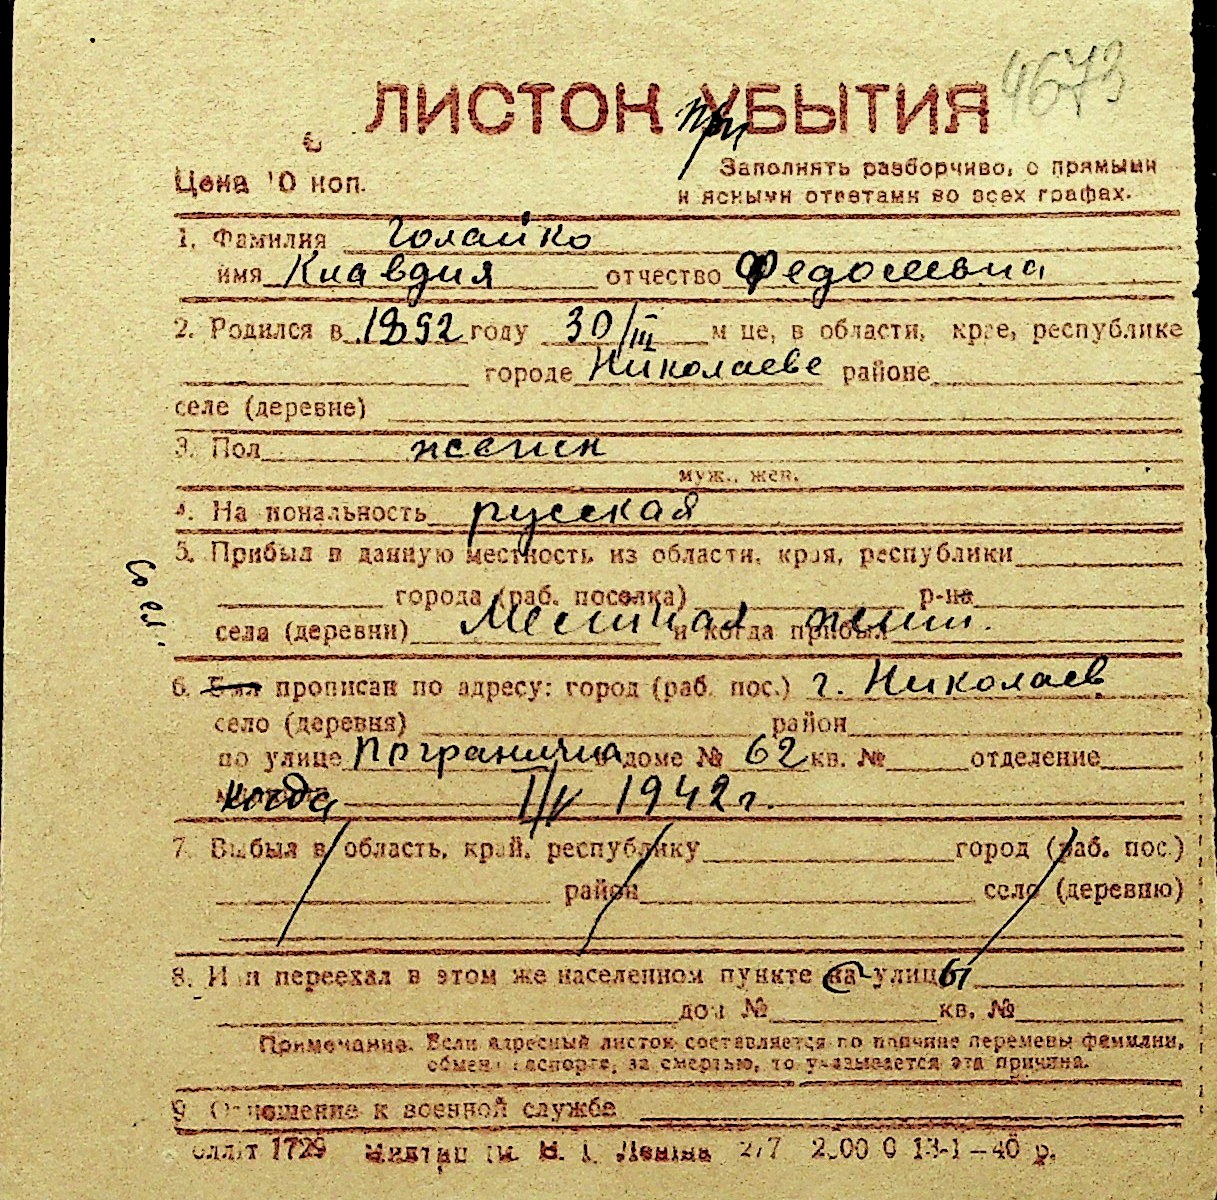 4673
ЛИСТОК при УБЫТИЯ
Цена 10 коп.
Заполнять разборчиво, с прямыми
и ясными ответами во всех графах.
1. Фамилия Голайко
имя Клавдия отчество Федосеевна
2. Родился в 1892 году 30/III м це, в области, крае, республике
городе Николаеве районе
селе (деревне)
3. Пол женск
муж., жен.
4. На иональность русская
5. Прибыл в данную местность из области, края, республики
города (раб. поселка) р-на
села (деревни) Местная жит. и когда прибыл
6. Был прописан по адресу: город (раб. пос.) г. Николаев
село (деревня) район
по улице Погранична доме № 62 кв. № отделение
когда 1/V 1942 г.
7. Выбыл в область, край, республику город (раб. пос.)
район село (деревню)
8. Или переехал в этом же населенном пункте на с улицы
дом № кв. №
Примечание. Если адресный листок составляется по причине перемены фамилии,
обмена паспорта, за смертью, то указывается эта причина.
9 Отношение к военной службе
1729 им. В. І. Леніна 13-1-40 р.